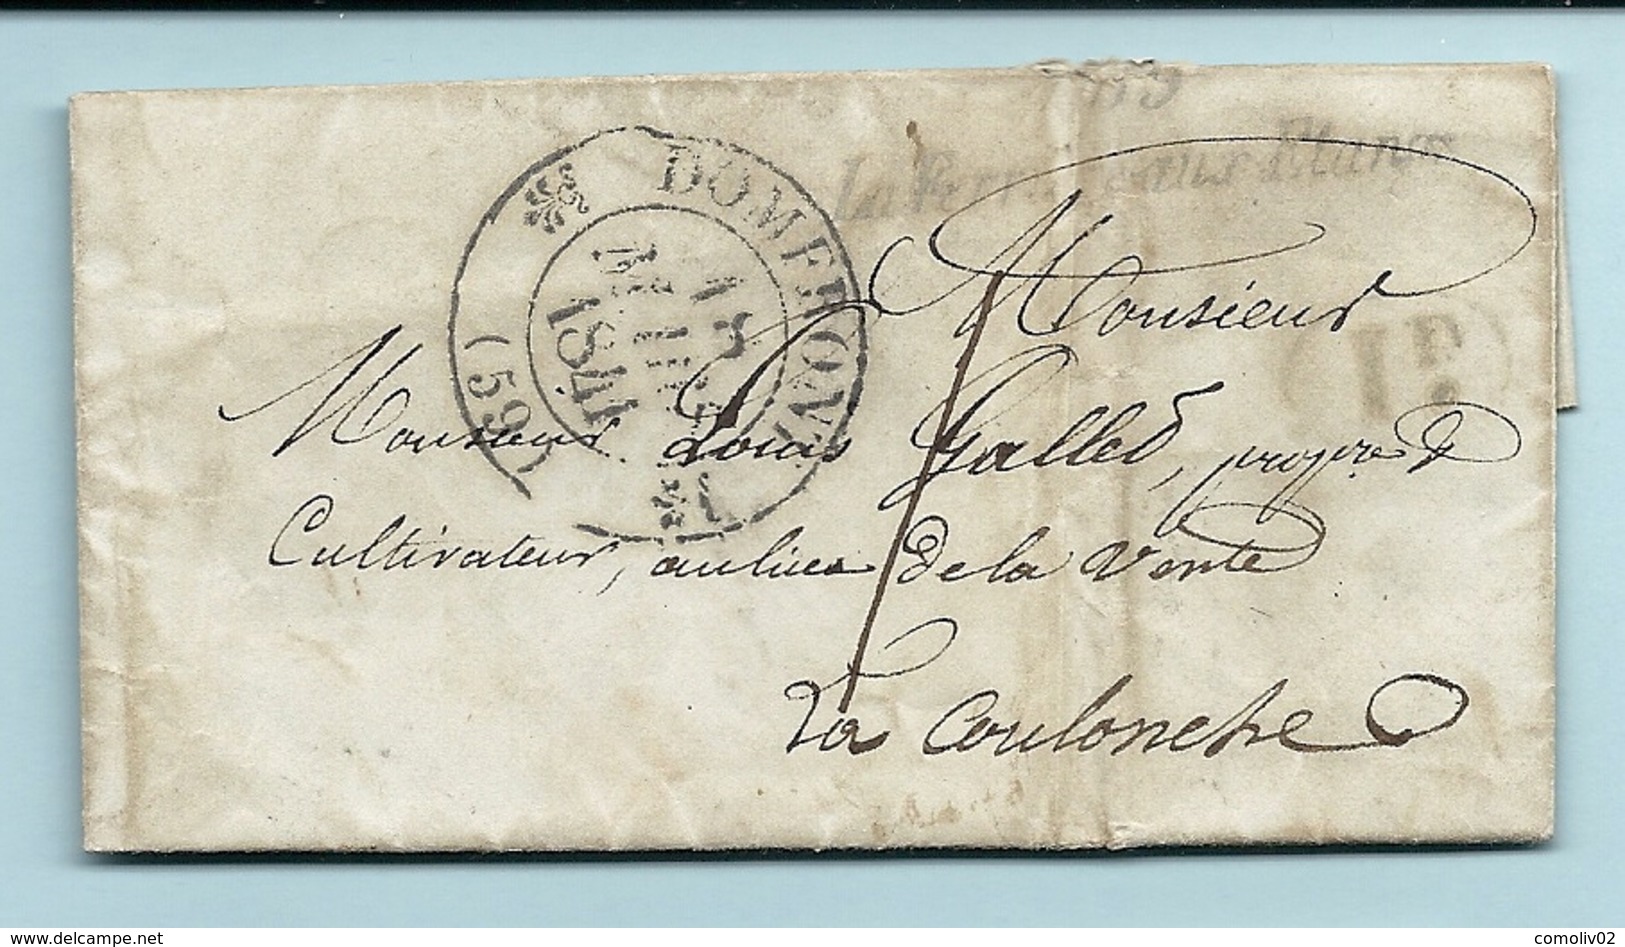 59
La Ferrière aux Etangs
DOMFRONT
15
JUIL
1841
(59)
1D
Monsieur
Monsieur Louis Galled, propre &
Cultivateur, au lieu de la Vente
La Coulonche
www.delcampe.net
comoliv02